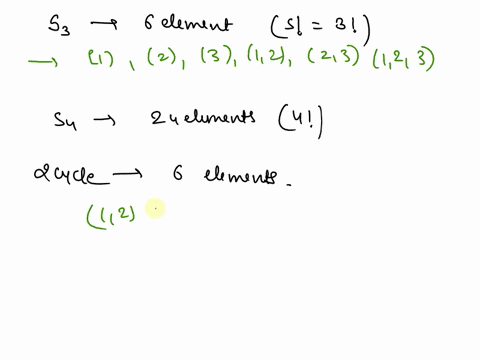 S3 → 6 element (S! = 3!)
→ (1), (2), (3), (1,2), (2,3) (1,2,3)
S4 → 24 elements (4!)
2 cycle → 6 elements.
(1,2)